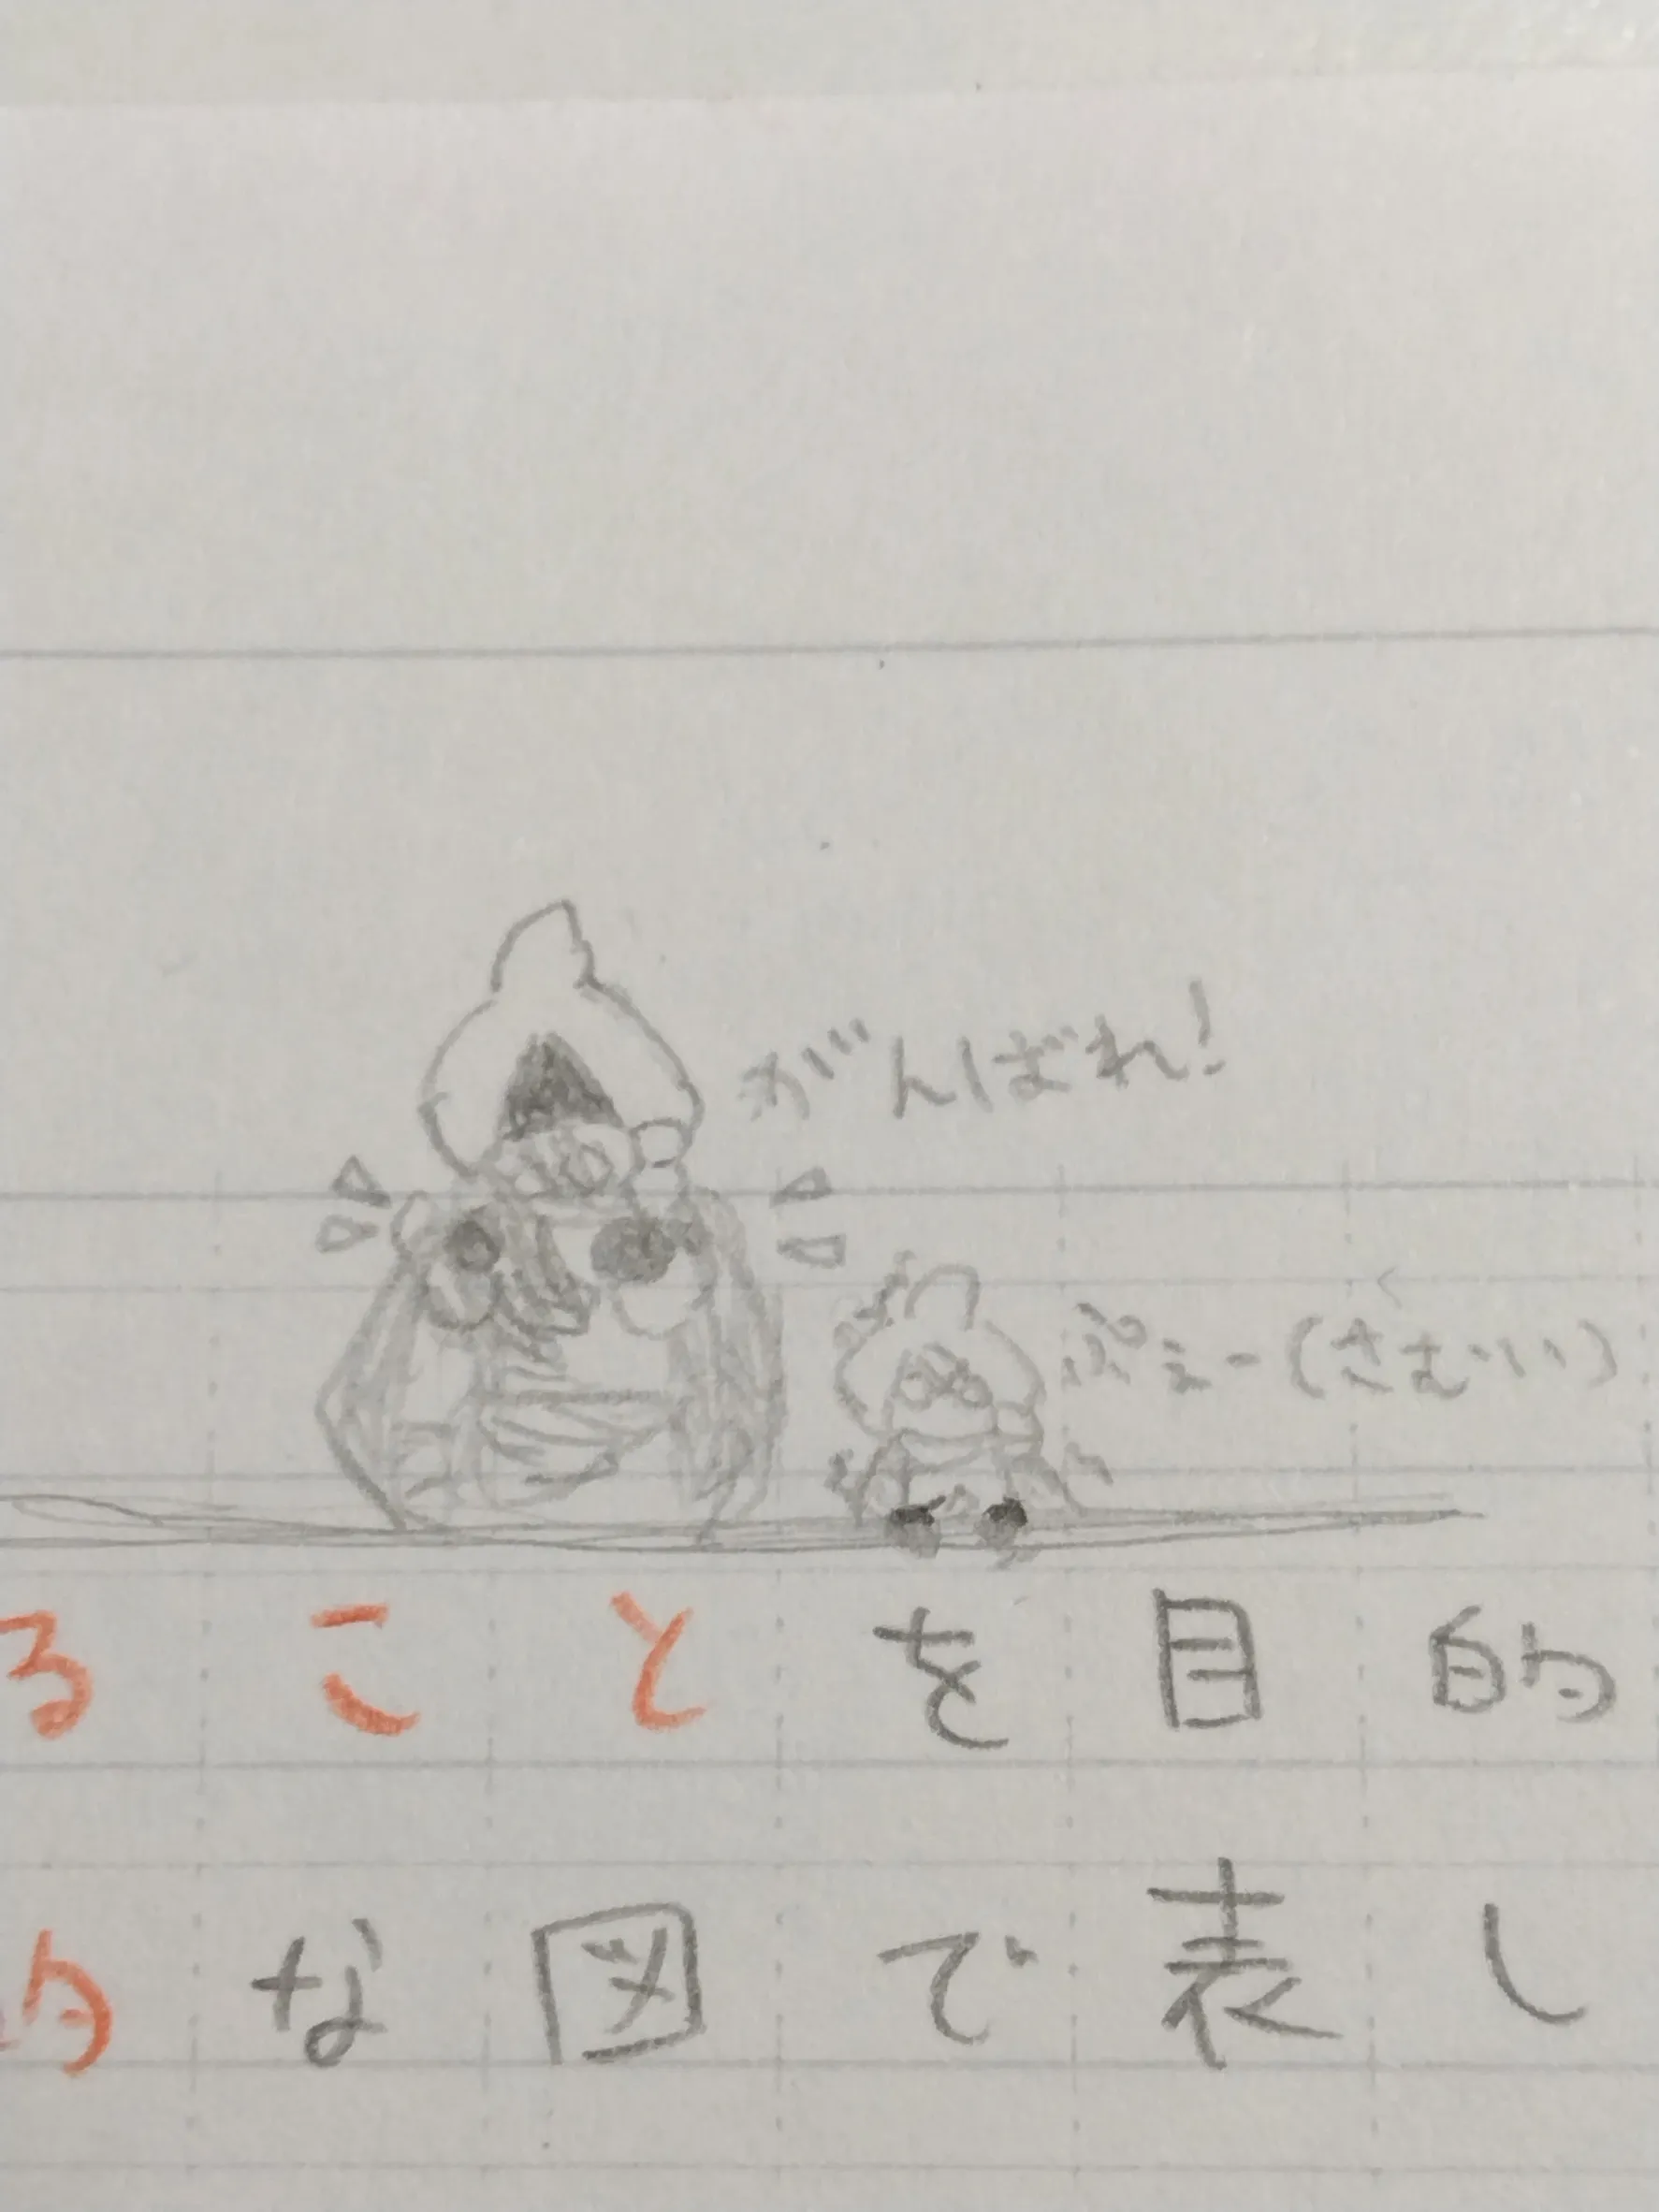 がんばれ!
ぷぇー(さむい)
ることを目的
的な図で表し